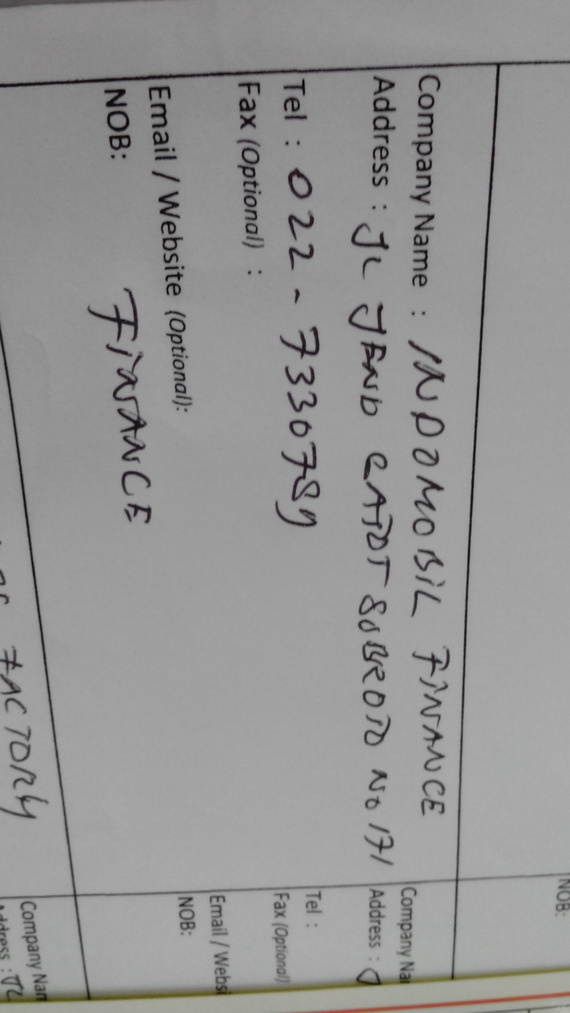 NOB:
Company Name : INDOMOBIL FINANCE
Address : JL JEND GATOT SUBROTO No 171
Tel : 022 - 7330789
Fax (Optional) :
Email / Website (Optional):
NOB: FINANCE
Company Nar
Address :
Tel :
Fax (Optional)
Email / Websi
NOB:
FACTORY
Company Nan
Address : JL